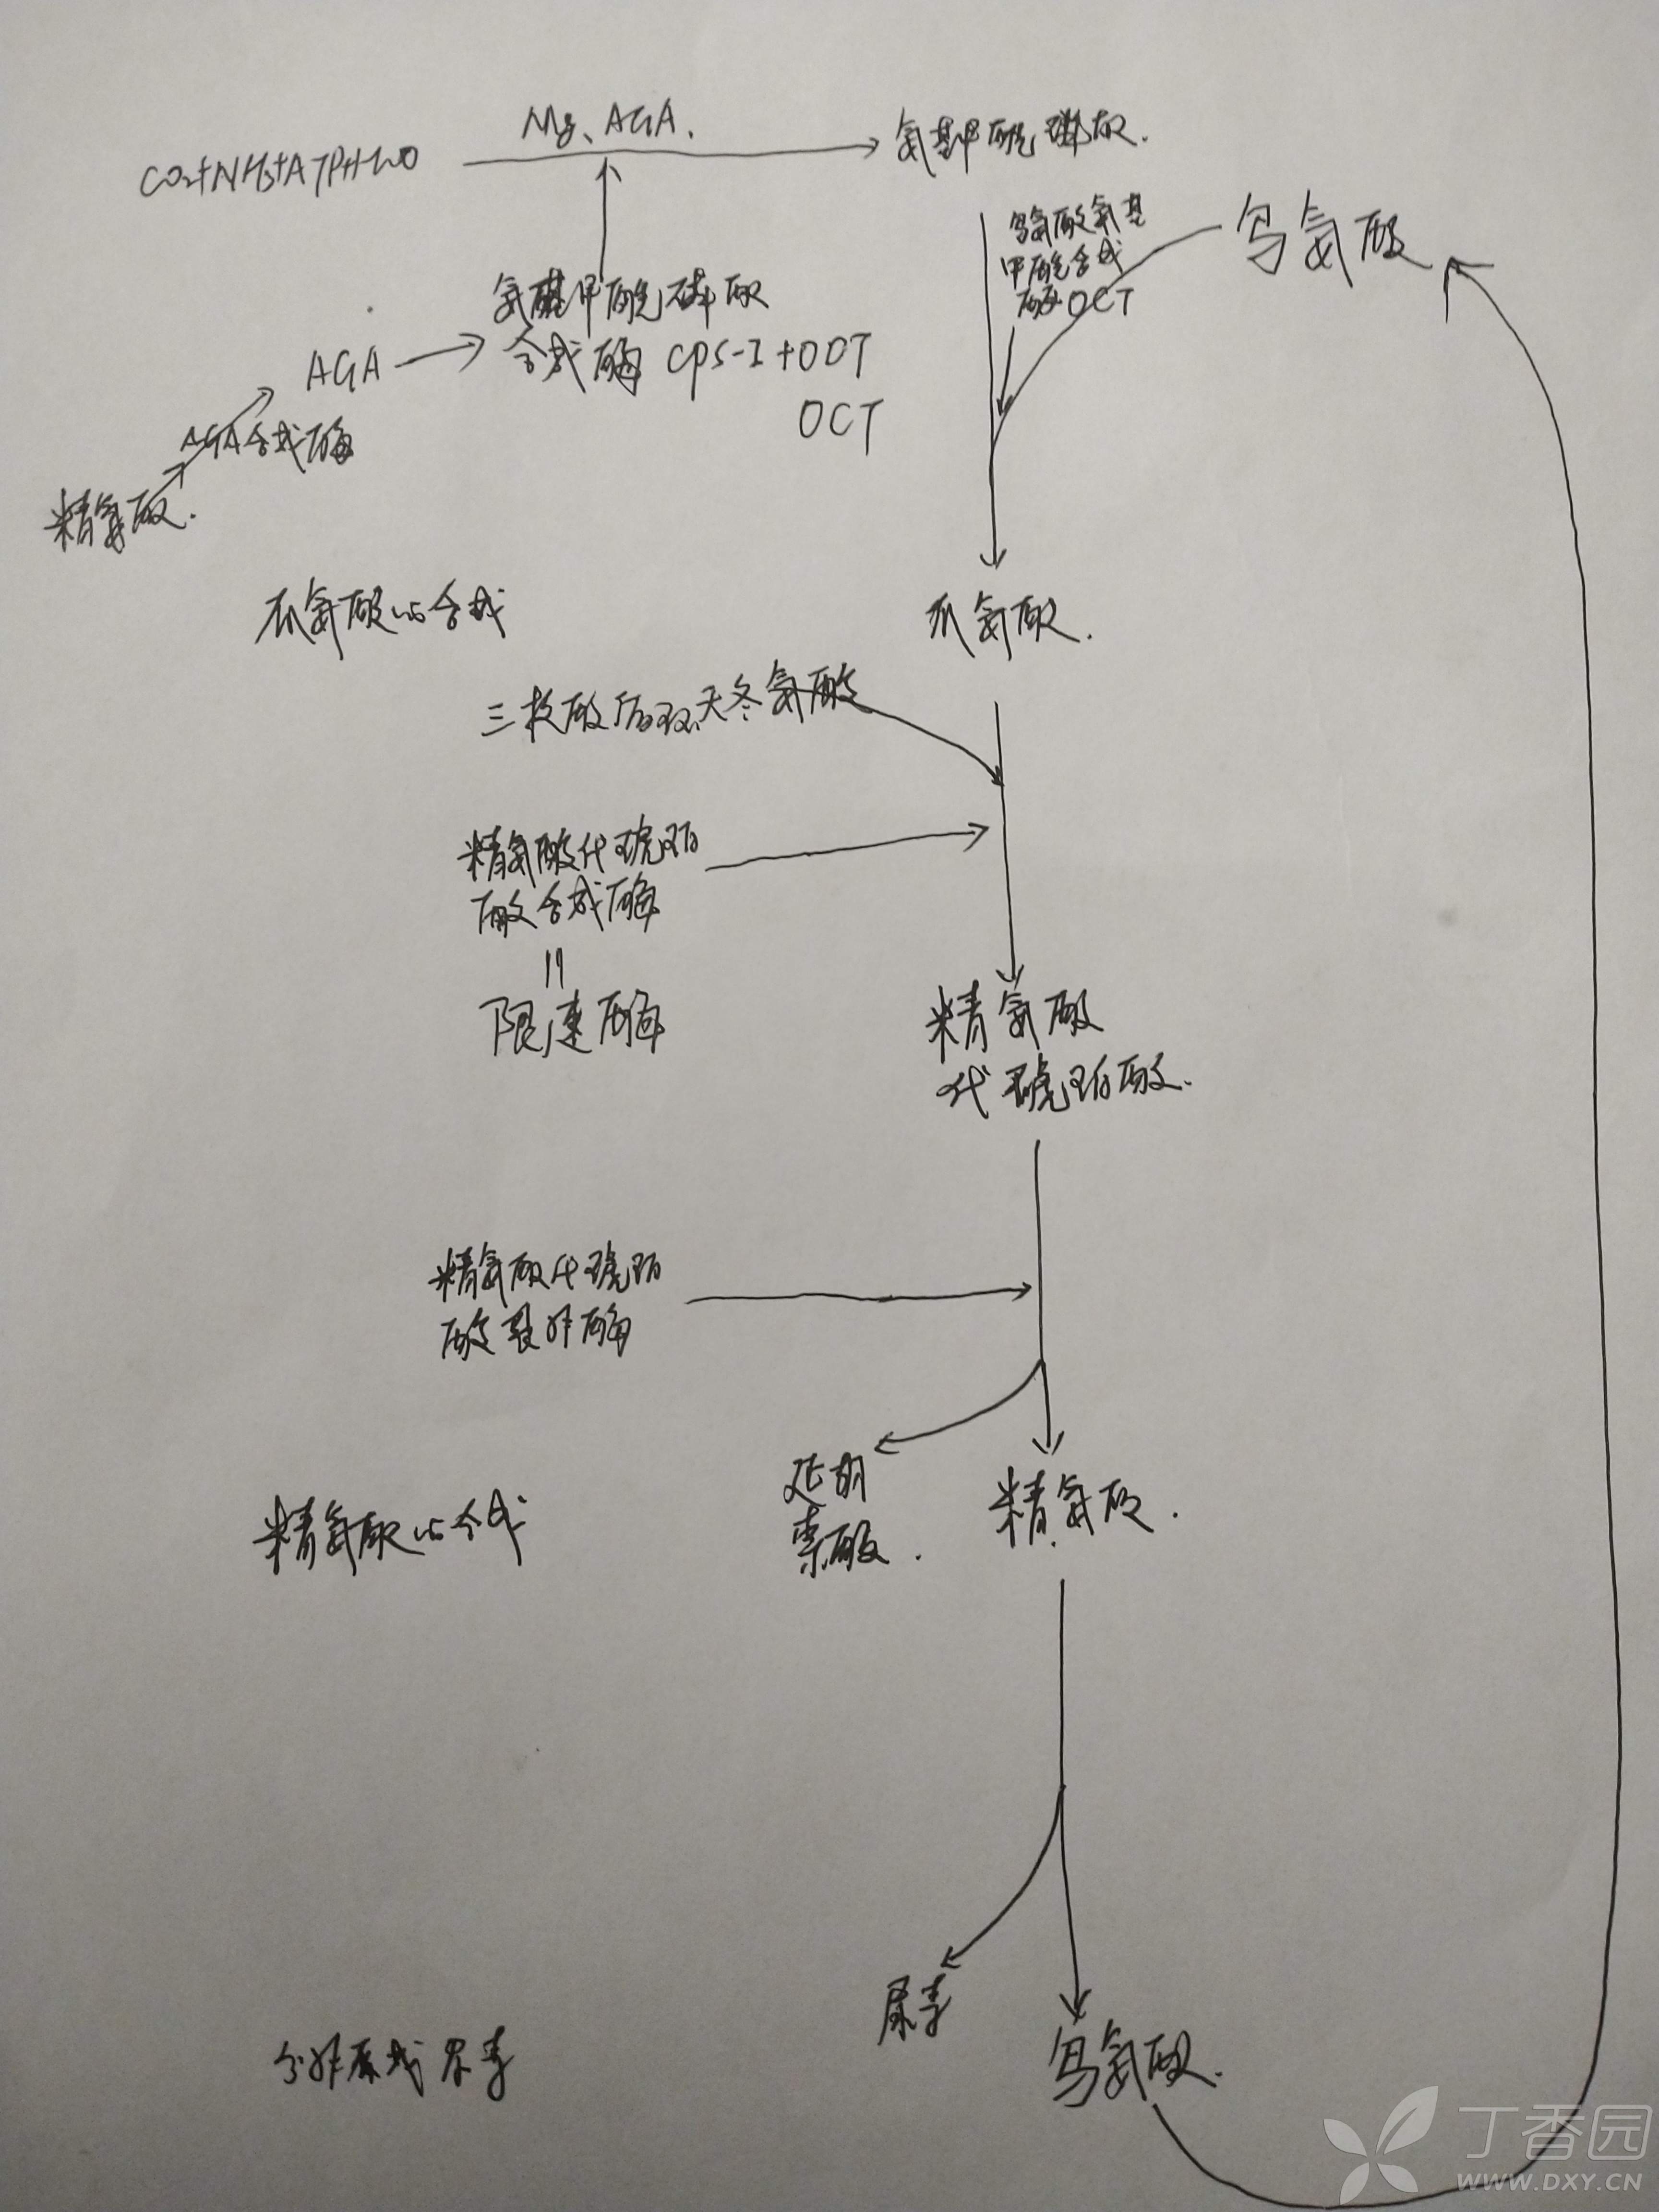 Mg、AGA.
CO2+NH3+ATP+H2O
氨基甲酰磷酸.
鸟氨酸氨基
甲酰合成
酶OCT
鸟氨酸
氨基甲酰磷酸
合成酶 CPS-I+OCT
OCT
AGA
AGA合成酶
精氨酸.
瓜氨酸的合成
瓜氨酸.
天冬氨酸
精氨酸代琥珀
酸合成酶
限速酶
精氨酸
代琥珀酸.
精氨酸代琥珀
酸裂解酶
延胡
索酸.
精氨酸.
精氨酸的合成
尿素
鸟氨酸.
尿素
丁香园
WWW.DXY.CN